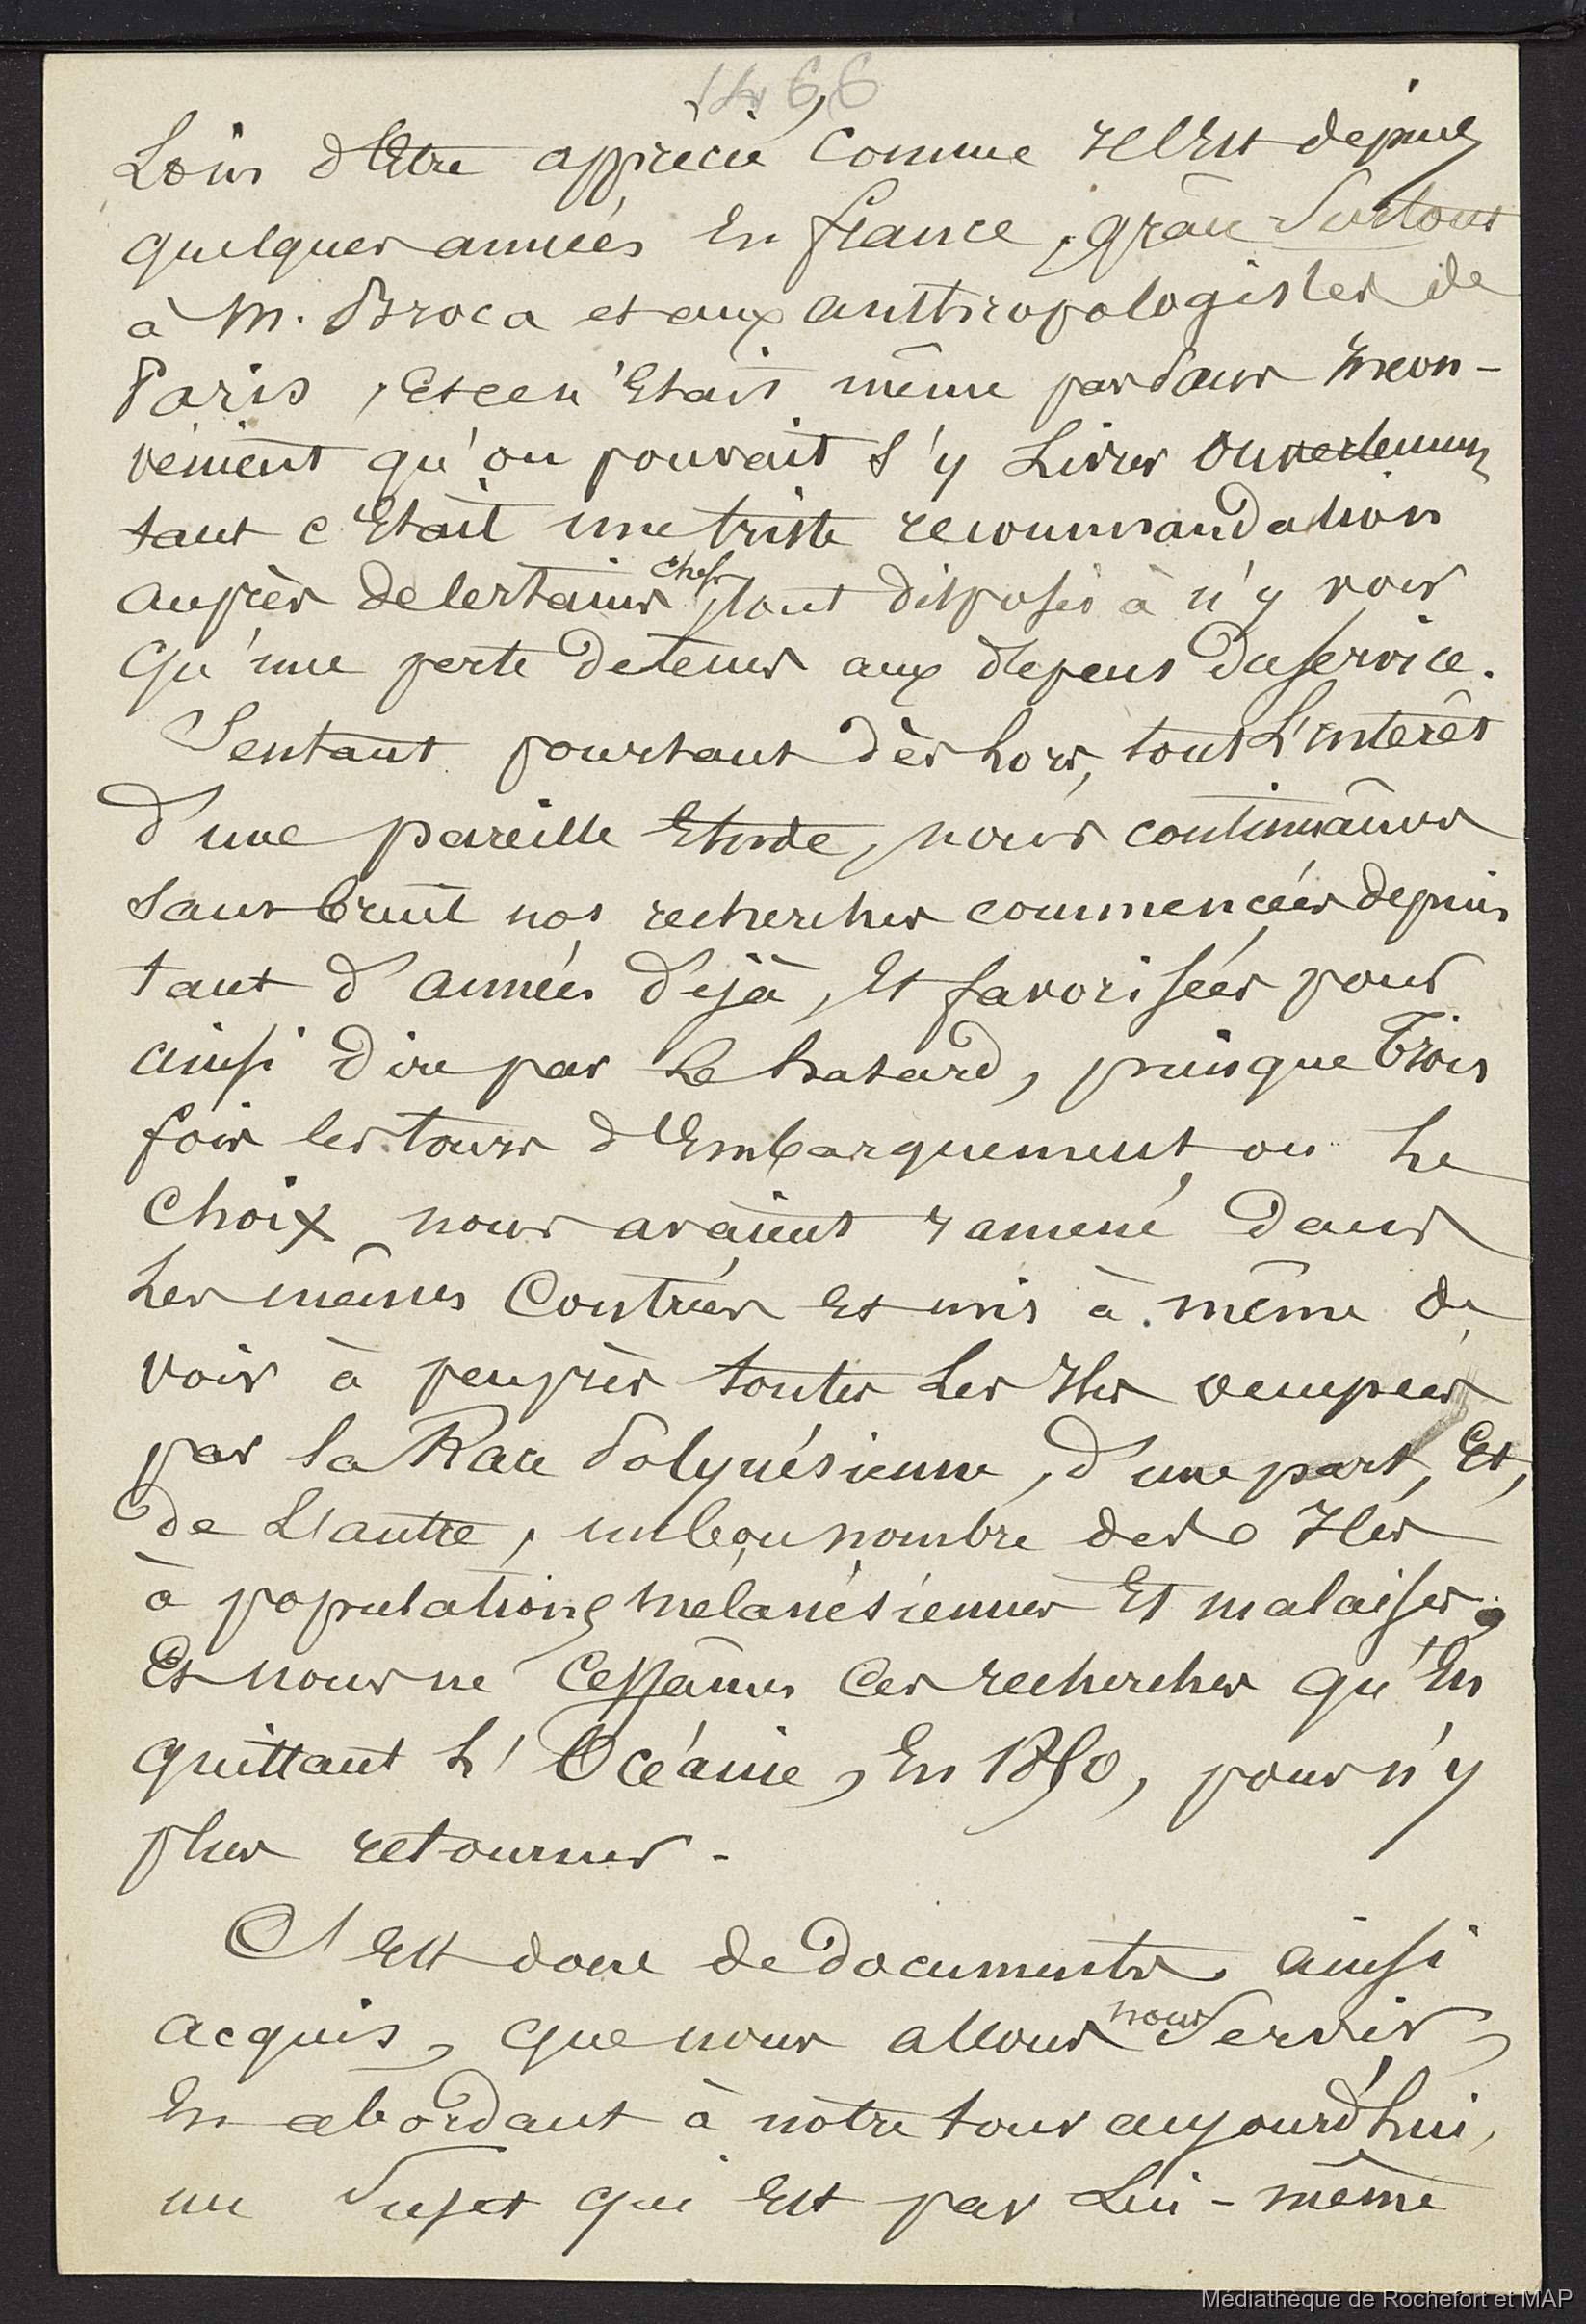 1466
Loin d'être apprécié comme il l'est depuis
quelques années en france, grâce surtout
à M. Broca et aux anthropologistes de
Paris, et ce n'était même pas sans incon-
vénient qu'on pouvait s'y livrer ouvertement
tant c'était une triste recommandation
auprès de certains chefs, tout disposés à n'y voir
qu'une perte de tems aux dépens du service.
Sentant pourtant dès lors, tout l'intérêt
d'une pareille étude, nous continuâmes
sans bruit nos recherches commencées depuis
tant d'années déjà, et favorisées pour
ainsi dire par le hasard, puisque trois
fois les tours d'embarquement ou le
choix nous avaient ramené dans
les mêmes contrées et mis à même de
voir à peu près toutes les Iles occupées
par la Race Polynésienne, d'une part, et,
de l'autre, un bon nombre des Iles
à populations mélanésiennes et malaises.
Et nous ne cessâmes ces recherches qu'en
quittant l'Océanie, en 1850, pour n'y
plus retourner.
C'est donc de documents ainsi
acquis, que nous allons nous servir,
en abordant à nôtre tour aujourd'hui,
un sujet qui est par lui-même
Médiathèque de Rochefort et MAP